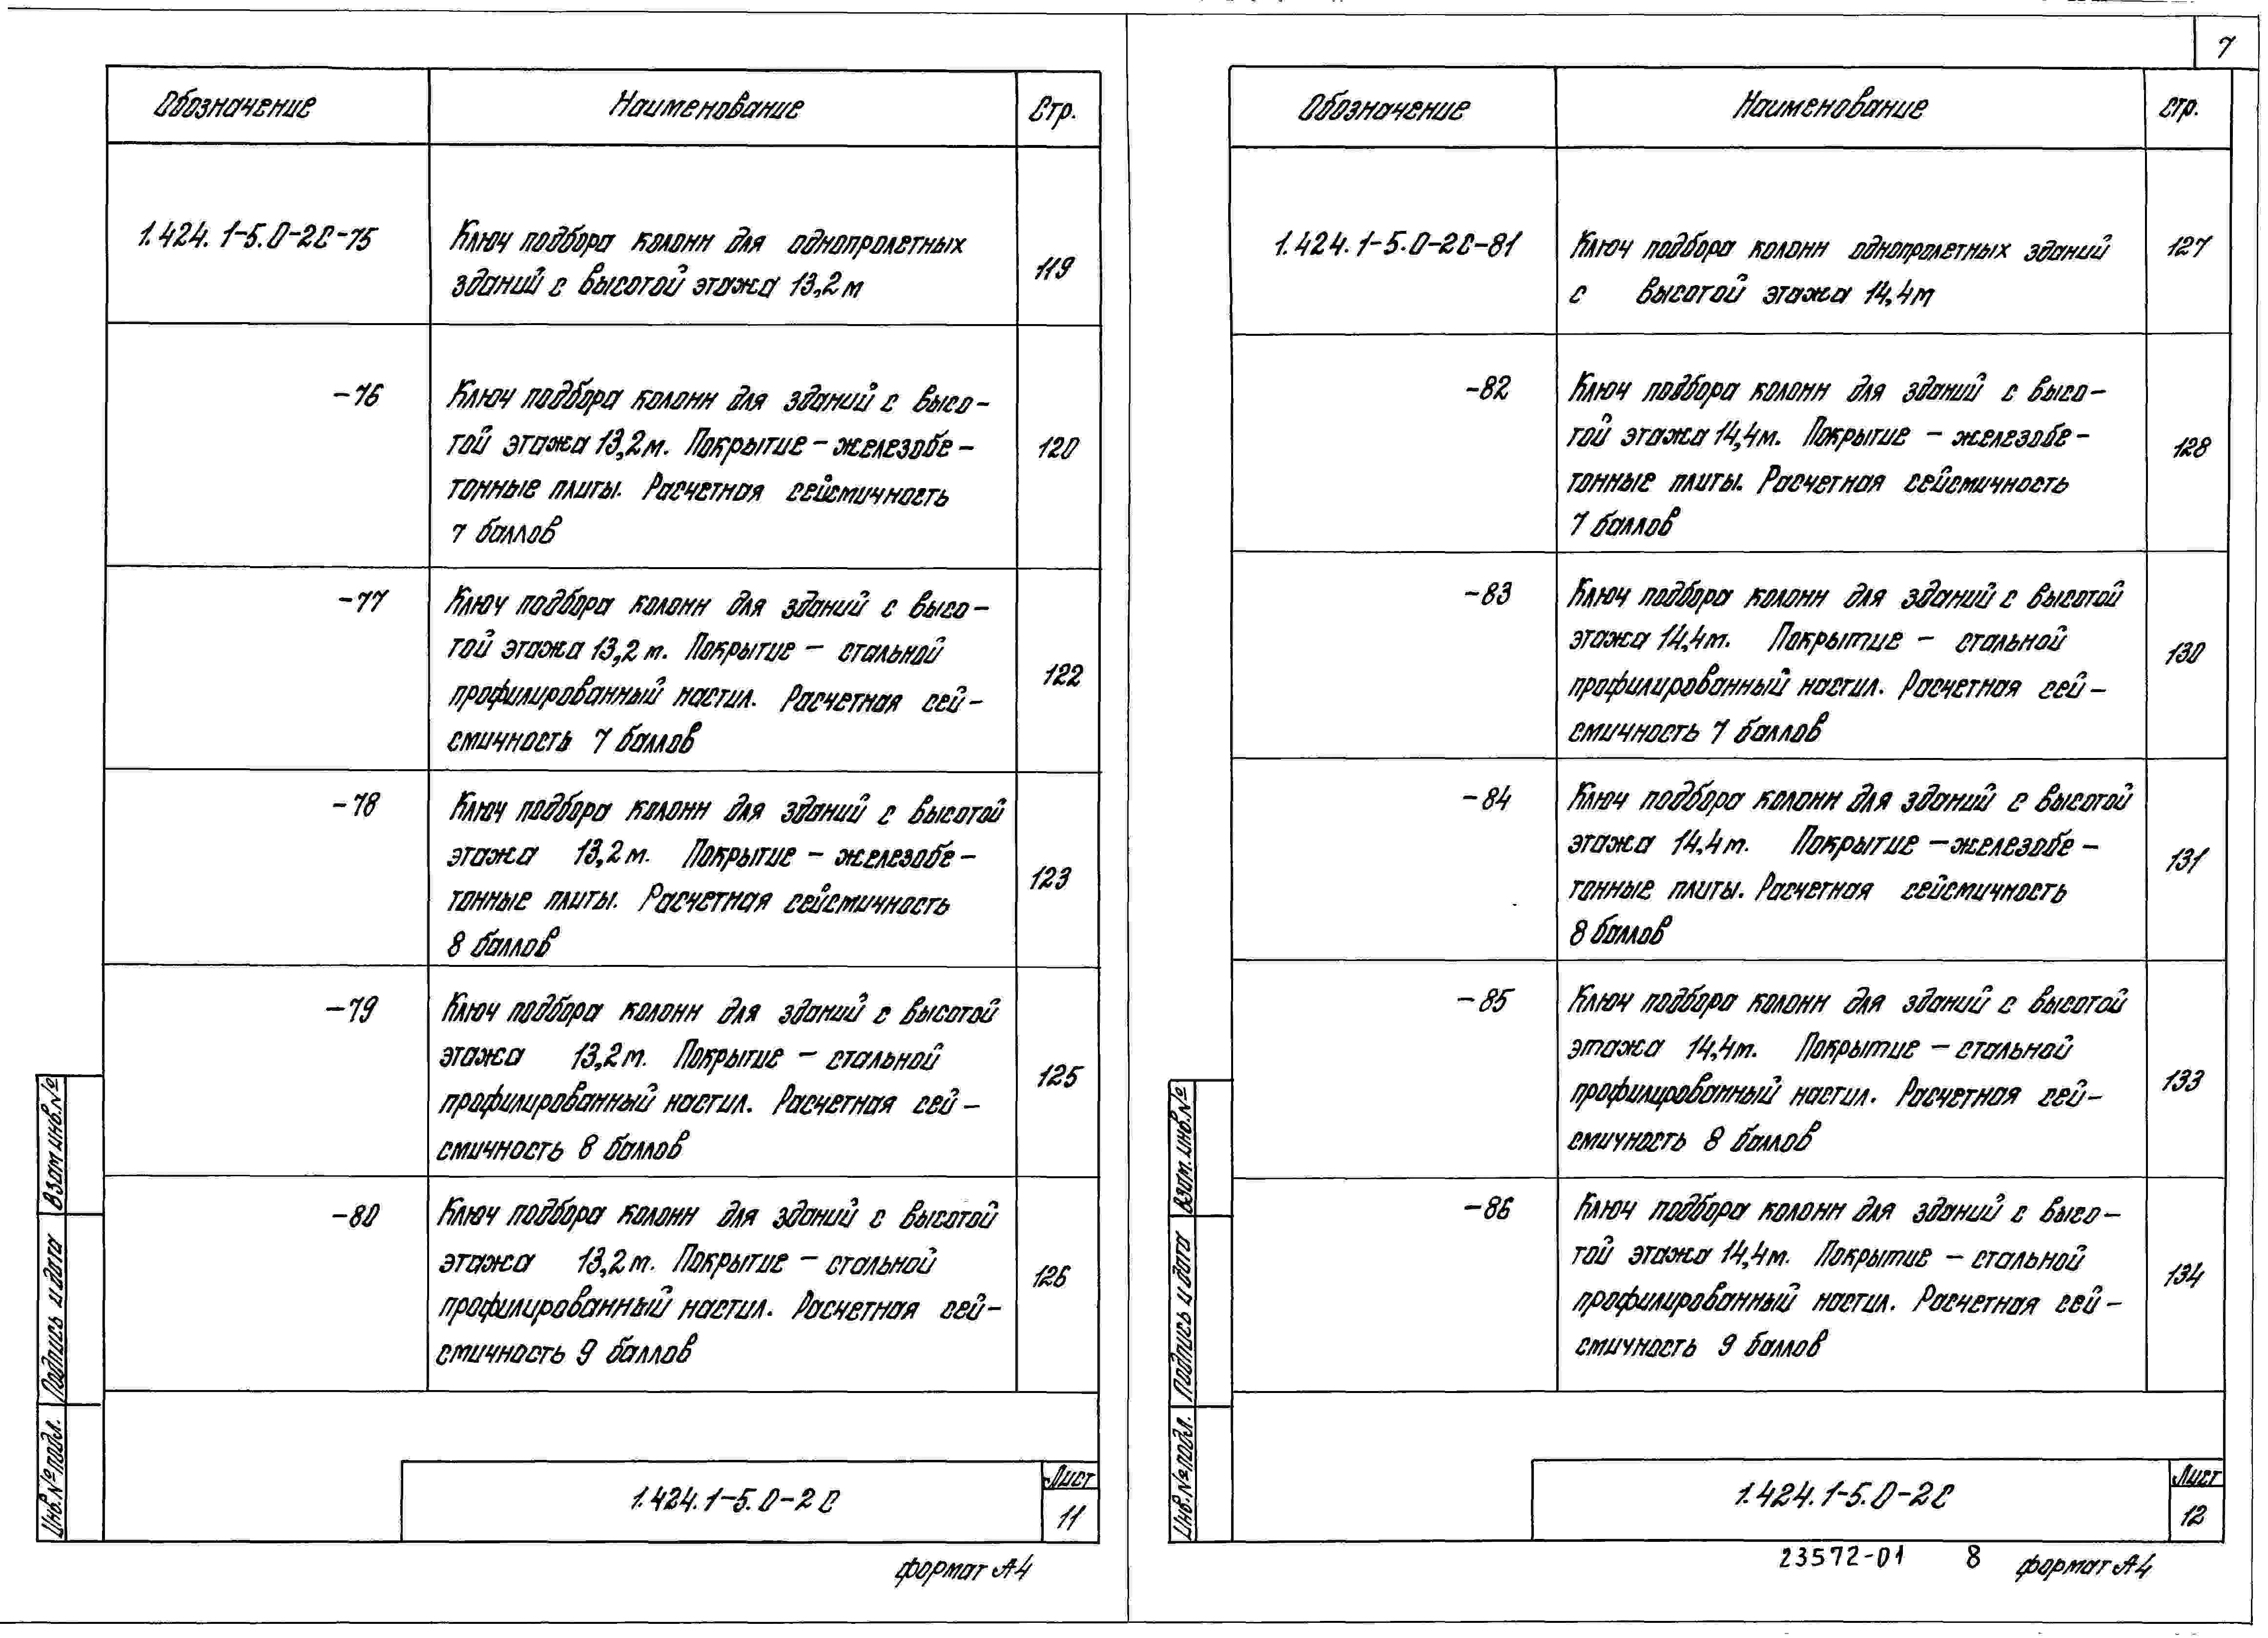 7
Обозначение
Наименование
Стр.
1.424.1-5.0-2С-75
Ключ подбора колонн для однопролетных
зданий с высотой этажа 13,2м
119
-76
Ключ подбора колонн для зданий с высо-
той этажа 13,2м. Покрытие - железобе-
тонные плиты. Расчетная сейсмичность
7 баллов
120
-77
Ключ подбора колонн для зданий с высо-
той этажа 13,2м. Покрытие - стальной
профилированный настил. Расчетная сей-
смичность 7 баллов
122
-78
Ключ подбора колонн для зданий с высотой
этажа 13,2м. Покрытие - железобе-
тонные плиты. Расчетная сейсмичность
8 баллов
123
-79
Ключ подбора колонн для зданий с высотой
этажа 13,2м. Покрытие - стальной
профилированный настил. Расчетная сей-
смичность 8 баллов
125
-80
Ключ подбора колонн для зданий с высотой
этажа 13,2м. Покрытие - стальной
профилированный настил. Расчетная сей-
смичность 9 баллов
126
Взам инв.№
Подпись и дата
Инв.№подл.
1.424.1-5.0-2С
Лист
11
формат А4
Обозначение
Наименование
стр.
1.424.1-5.0-2С-81
Ключ подбора колонн однопролетных зданий
с высотой этажа 14,4м
127
-82
Ключ подбора колонн для зданий с высо-
той этажа 14,4м. Покрытие - железобе-
тонные плиты. Расчетная сейсмичность
7 баллов
128
-83
Ключ подбора колонн для зданий с высотой
этажа 14,4м. Покрытие - стальной
профилированный настил. Расчетная сей-
смичность 7 баллов
130
-84
Ключ подбора колонн для зданий с высотой
этажа 14,4м. Покрытие - железобе-
тонные плиты. Расчетная сейсмичность
8 баллов
131
-85
Ключ подбора колонн для зданий с высотой
этажа 14,4м. Покрытие - стальной
профилированный настил. Расчетная сей-
смичность 8 баллов
133
-86
Ключ подбора колонн для зданий с высо-
той этажа 14,4м. Покрытие - стальной
профилированный настил. Расчетная сей-
смичность 9 баллов
134
Взам.инв.№
Подпись и дата
Инв.№подл.
1.424.1-5.0-2С
Лист
12
23572-01 8 формат А4